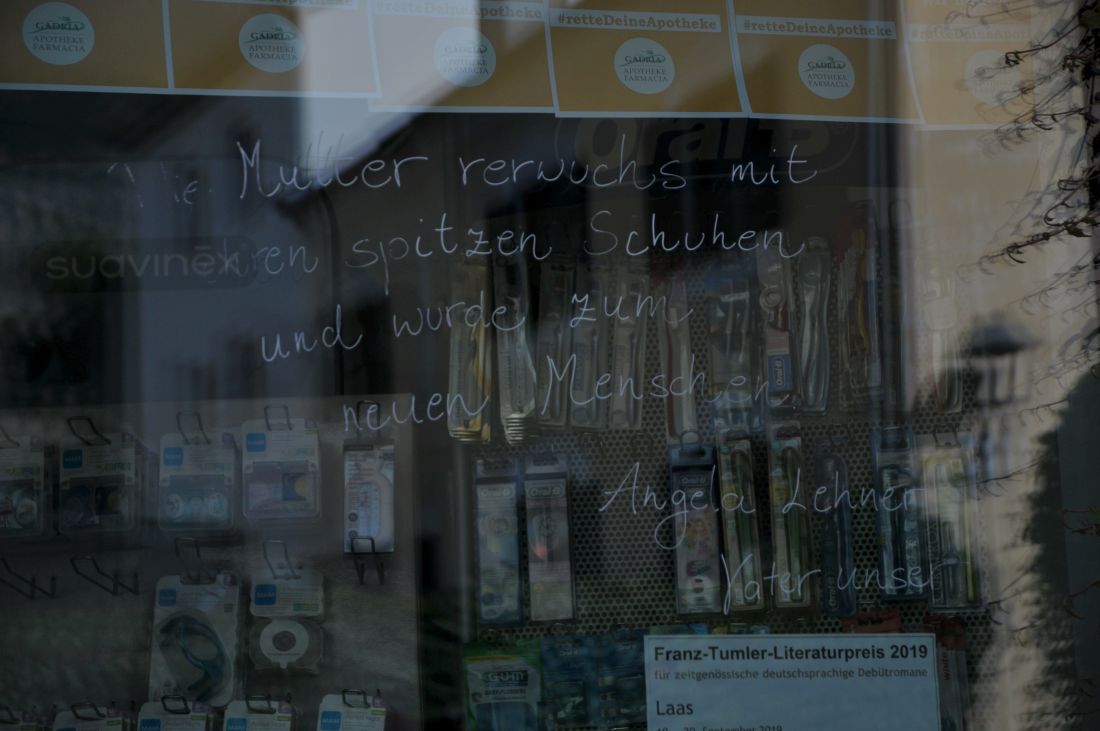 GADRIA
APOTHEKE
FARMACIA
GADRIA
APOTHEKE
FARMACIA
#retteDeineApotheke
GADRIA
APOTHEKE
FARMACIA
#retteDeineApotheke
GADRIA
APOTHEKE
FARMACIA
#retteDeineApotheke
GADRIA
APOTHEKE
FARMACIA
Oral-B
suavinex
Die Mutter verwuchs mit
ihren spitzen Schuhen
und wurde zum
neuen Menschen.
Angela Lehner
Vater unser
MAM
MAM
MAM
MAM
Oral-B
Oral-B
MAM
MAM
GUM
Franz-Tumler-Literaturpreis 2019
für zeitgenössische deutschsprachige Debütromane
Laas